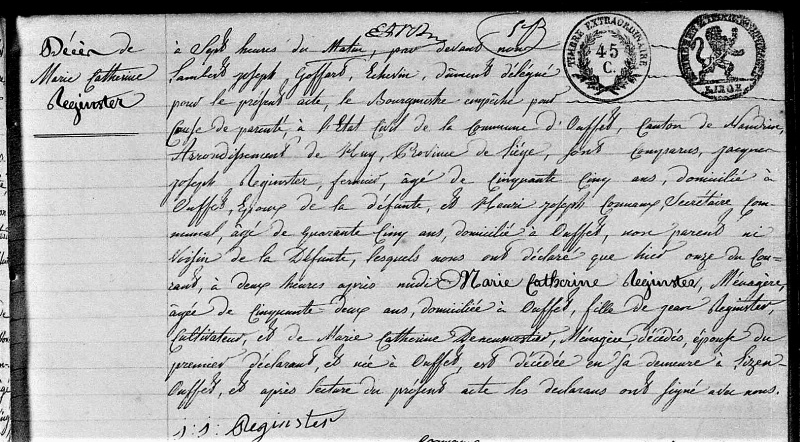 Décès de
Marie Catherine
Reginster
TIMBRE EXTRAORDINAIRE
45
C.
LIEGE
à Sept heures du Matin, par devant nous
Lambert joseph Goffart, Echevin, dûment délégué
pour le présent acte, le Bourgmestre empêché pour
Cause de parenté, à l'Etat Civil de la Commune d'Ouffet, Canton de Nandrin,
Arrondissement de Huy, Province de Liége, sont comparus, jacques
joseph Reginster, fermier, âgé de Cinquante Cinq ans, domicilié à
Ouffet, Epoux de la défunte, et Henri joseph Connaux, Secrétaire Com-
munal, âgé de quarante Cinq ans, domicilié à Ouffet, non parent ni
Voisin de la Défunte, lesquels nous ont déclaré que hier onze du Cou-
rant, à deux heures après midi Marie Catherine Reginster, Ménagère,
âgée de Cinquante deux ans, domiciliée à Ouffet, fille de jean Reginster,
Cultivateur, et de Marie Catherine Deneumostier, Ménagère décédés, épouse du
premier déclarant, et née à Ouffet, est décédée en sa demeure à Lizen-
Ouffet, et après lecture du présent acte les déclarans ont signé avec nous.
s: s: Reginster